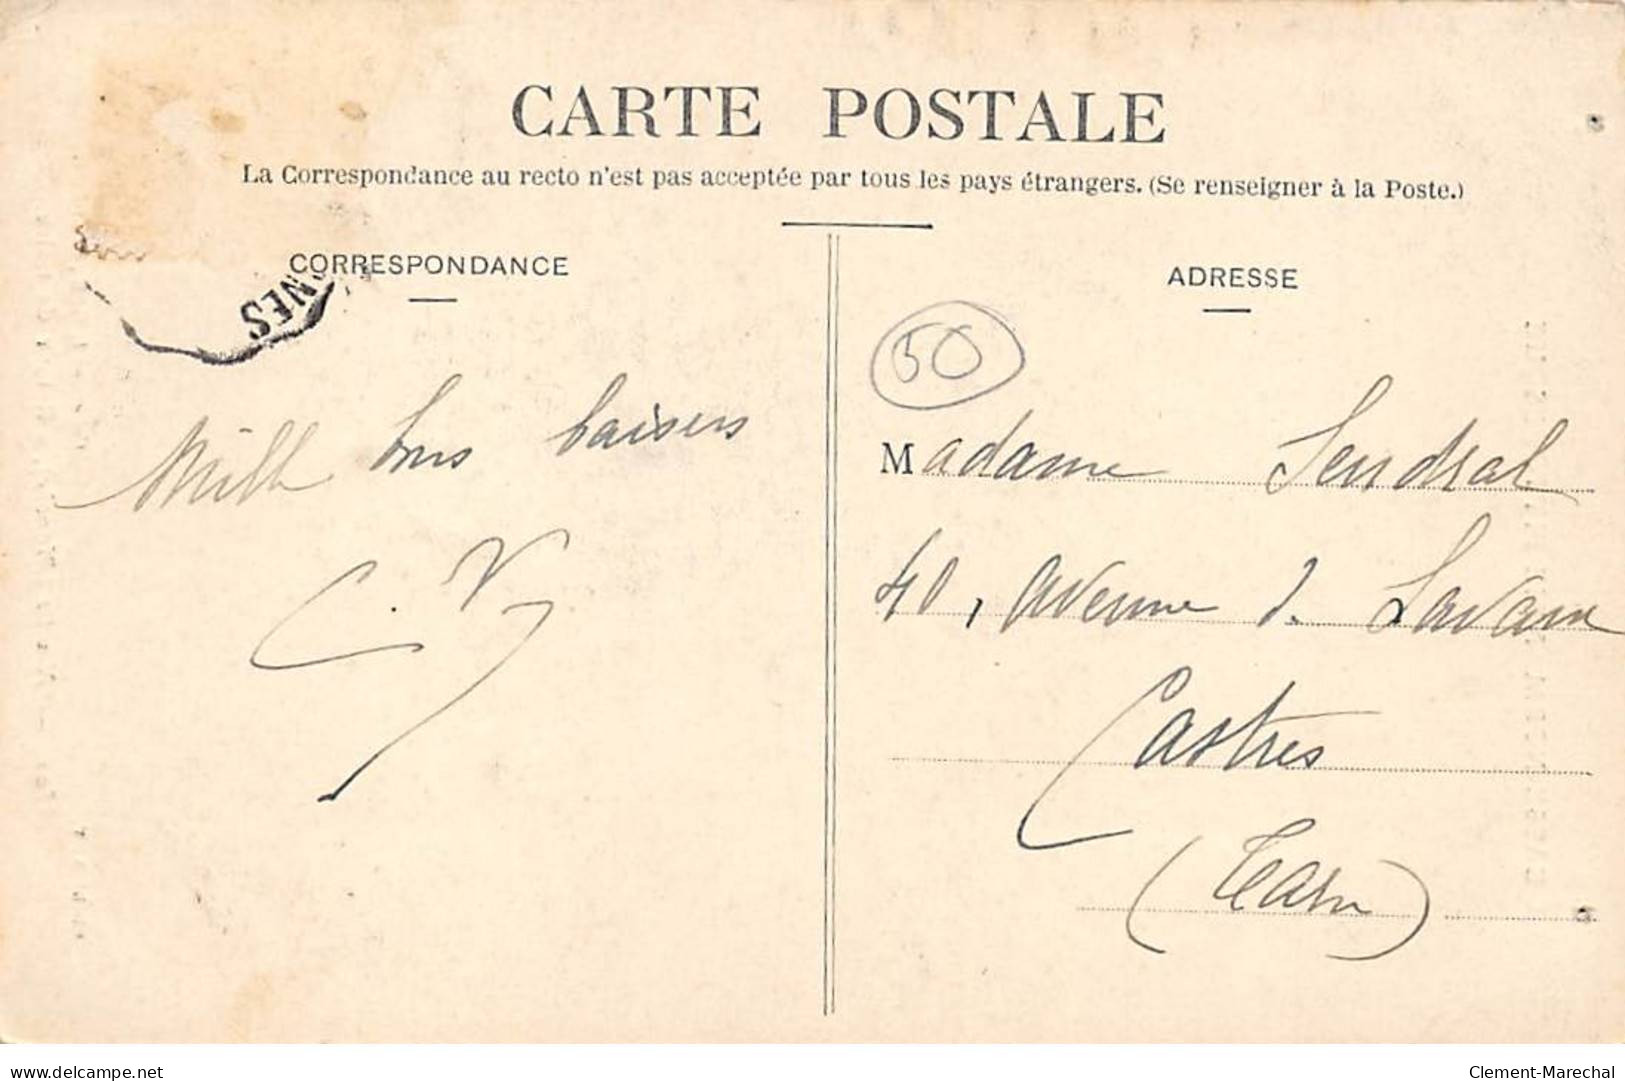 CARTE POSTALE
La Correspondance au recto n'est pas acceptée par tous les pays étrangers. (Se renseigner à la Poste.)
CORRESPONDANCE
NES
Mille bons baisers
C. V
ADRESSE
50
Madame Sendral
40, avenue d. Lavaur
Castres
(Tarn)
www.delcampe.net
Clement-Marechal